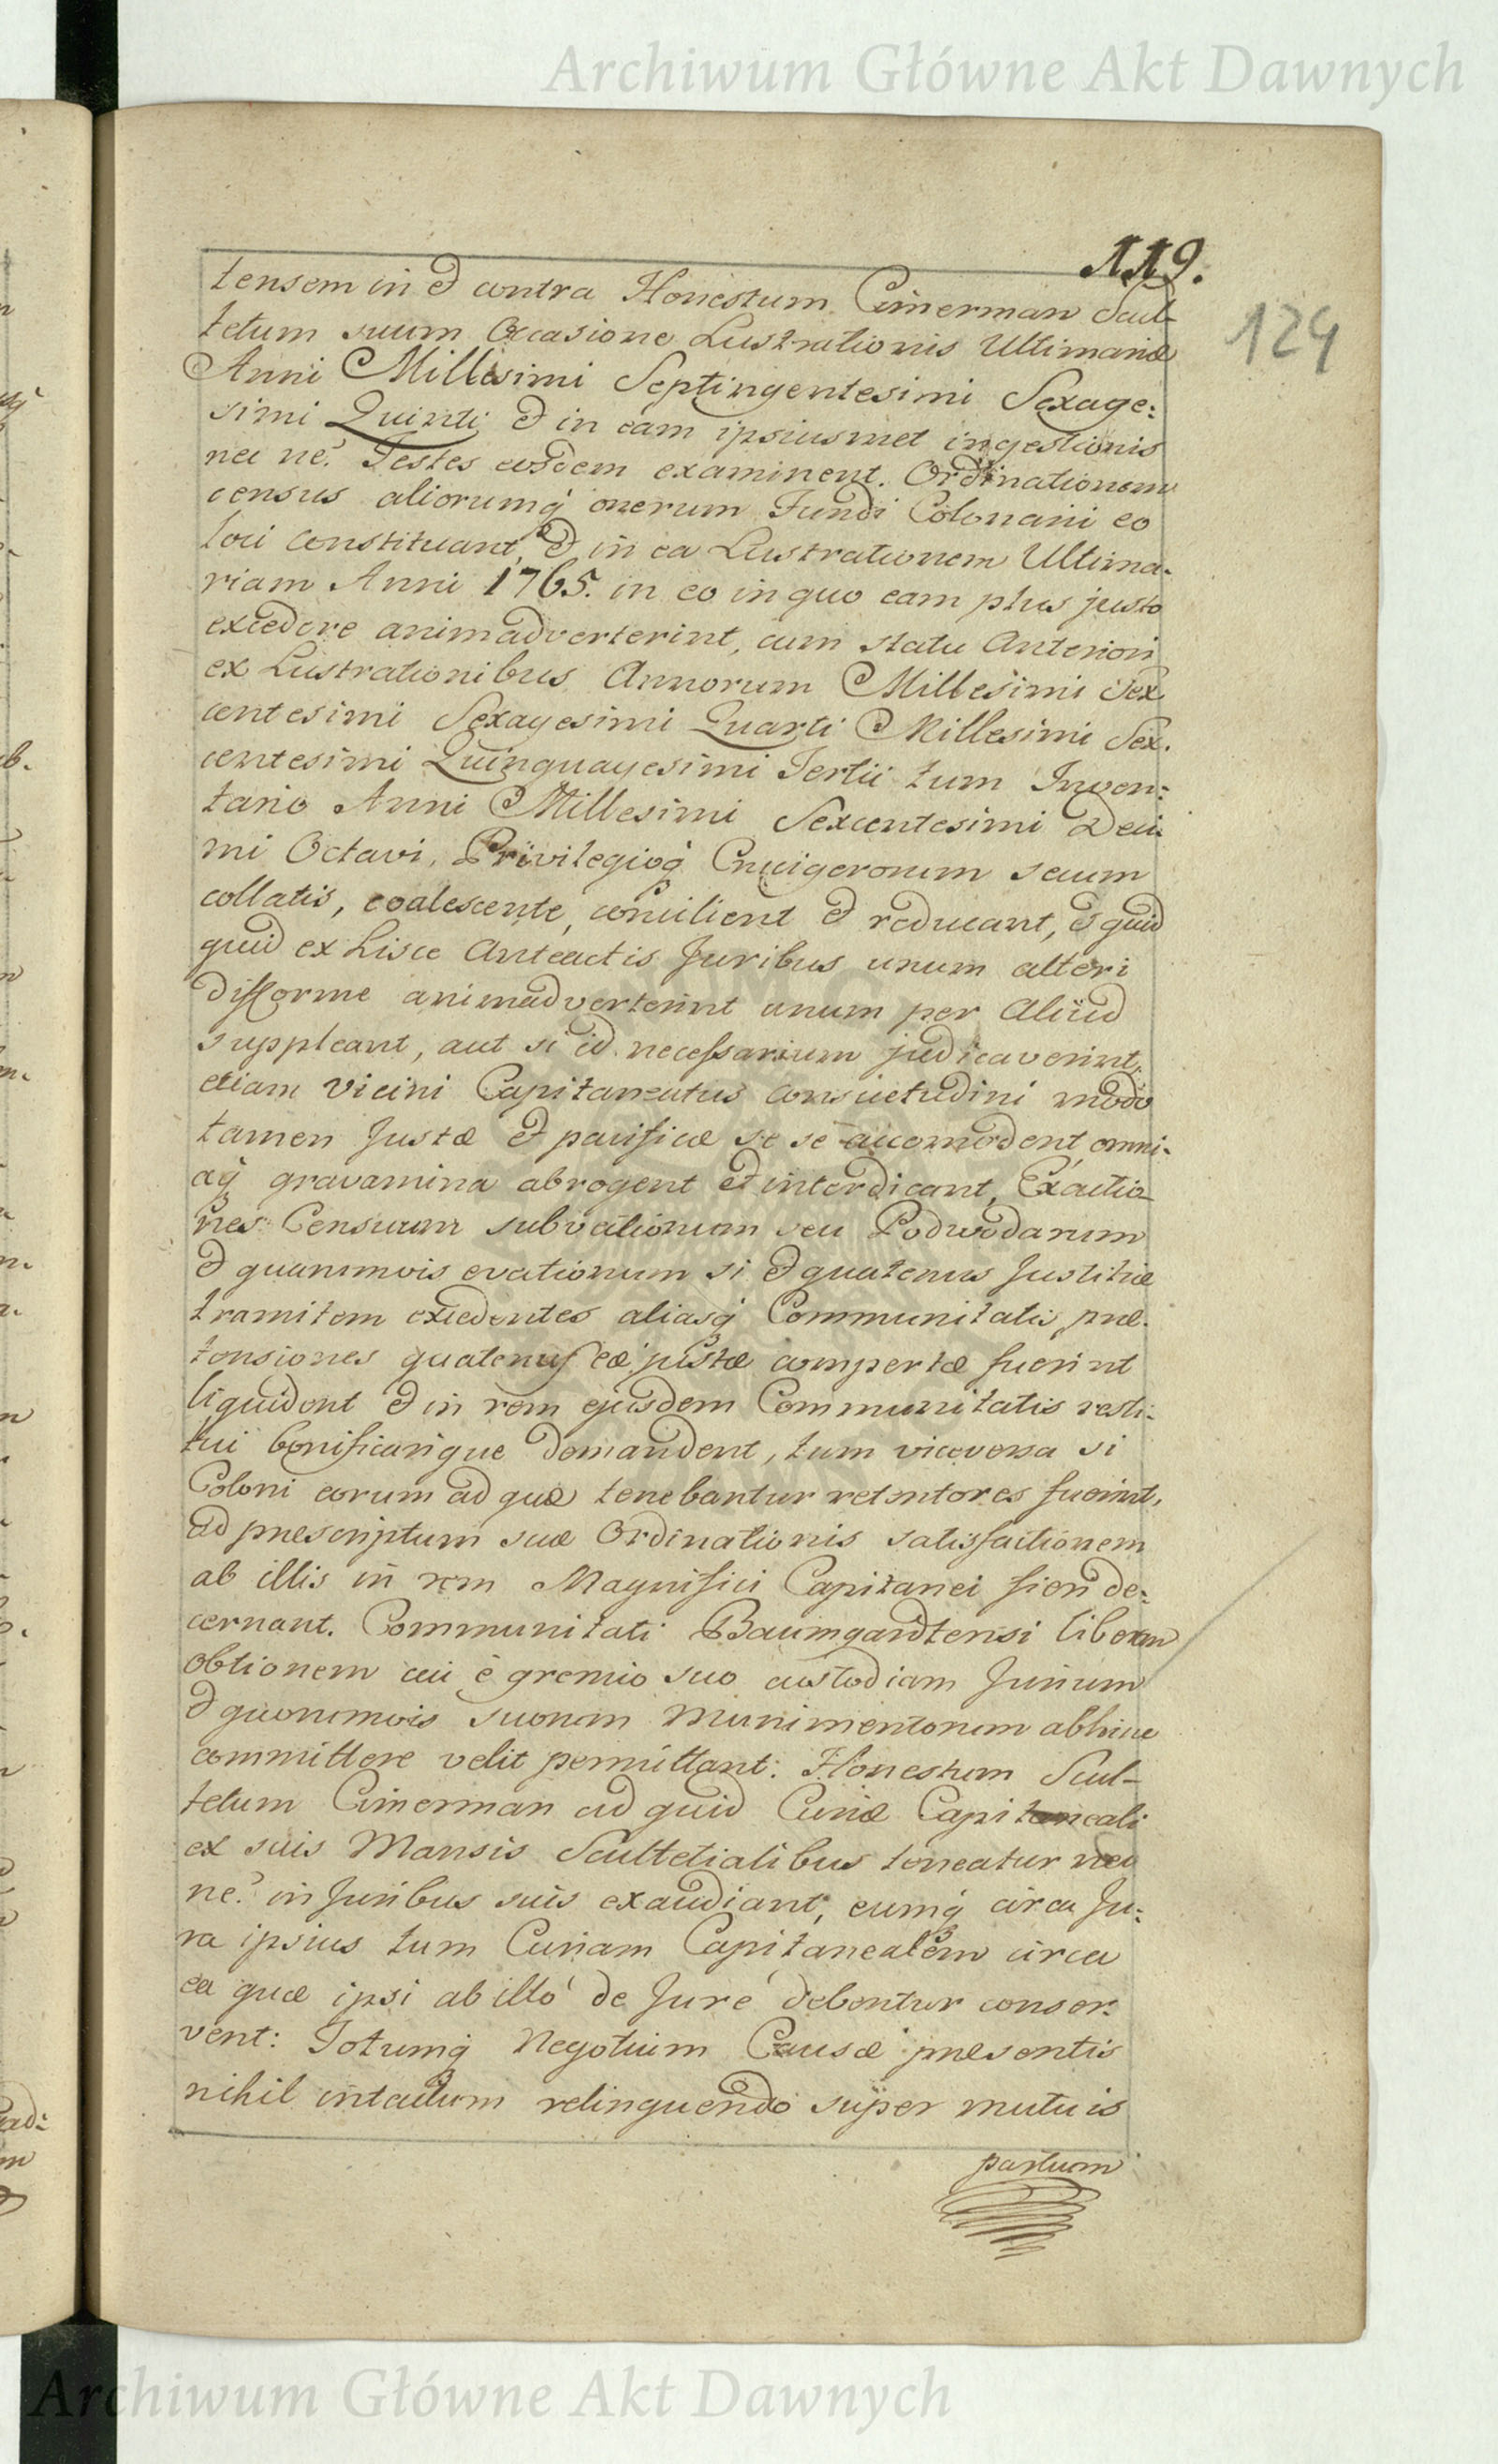 Archiwum Główne Akt Dawnych
119.
124
tensem in et contra Honestum Cimerman Scul-
tetum suum Occasione Lustrationis Ultimariæ
Anni Millesimi Septingentesimi Sexage:
simi Quinti et in eam ipsiusmet ingestionis
nec ne? Testes eosdem examinent. Ordinationem
census aliorumq́ onerum Fundi Colonarii eo
loci constituant, et in ea Lustrationem Ultima-
riam Anni 1765. in eo in quo eam plus justo
excedere animadverterint, cum statu Anteriori
ex Lustrationibus Annorum Millesimi Sex
centesimi Sexagesimi Quarti Millesimi Sex.
centesimi Quinquagesimi Tertii tum Inven:
tario Anni Millesimi Sexcentesimi Deci
mi Octavi, Privilegioq́ Crucigerorum secum
collatis, coalescente, concilient et reducant, et quid
quid ex hisce Anteactis Juribus unum alteri
difforme animadverterint unum per Aliud
suppleant, aut si id necessarium judicaverint,
etiam vicini Capitaneatus consuetudini modo
tamen Justæ et pacificæ se se accomodent, omni-
aq́ gravamina abrogent et interdicant, Exactio-
nes Censuum subvectionum seu Podwodarum
et quarumvis evectionum si et quatenus Justitiæ
tramitem excedentes aliasq́ Communitatis præ-
tensiones quatenus eæ justæ compertæ fuerint
liquident et in rem ejusdem Communitatis resti-
tui bonificarique demandent, tum viceversa si
Coloni eorum ad quæ tenebantur retentores fuerint,
ad præscriptum suæ Ordinationis satisfactionem
ab illis in rem Magnifici Capitanei fieri de:
cernant. Communitati Baumgardtensi liberam
obtionem cui è gremio suo custodiam Jurium
et quorumvis suorum Munimentorum abhinc
committere velit permittant: Honestum Scul-
tetum Cimerman ad quid Curiæ Capitaneali
ex suis Mansis Scultetialibus teneatur nec
ne? in Juribus suis exaudiant, eumq́ circa Ju:
ra ipsius tum Curiam Capitanealem circa
ea quæ ipsi ab illo de Jure debentur conser:
vent: Totumq́ Negotium Causæ præsentis
nihil intactum relinquendo super mutuis
partium
Archiwum Główne Akt Dawnych